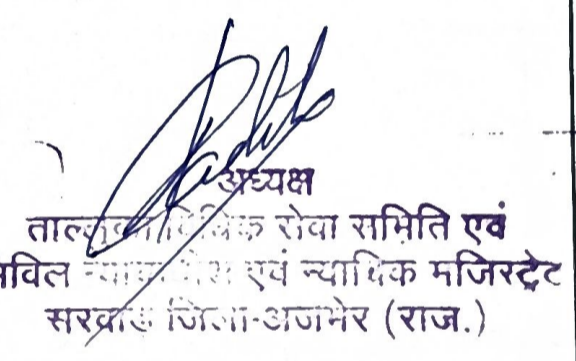 अध्यक्ष
ताल्लुका विधिक सेवा समिति एवं
सिविल न्यायाधीश एवं न्यायिक मजिस्ट्रेट
सरवाड जिला-अजमेर (राज.)